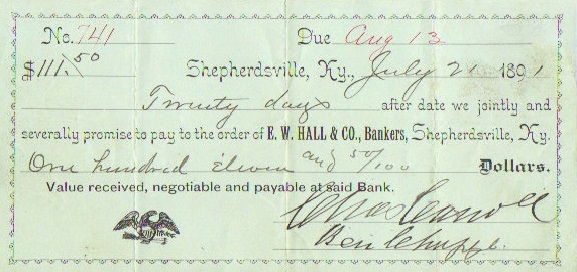 No. 741 Due Aug 13
$111.50 Shepherdsville, Ky., July 21 1891
Twenty days after date we jointly and
severally promise to pay to the order of E. W. HALL & CO., Bankers, Shepherdsville, Ky.
One hundred eleven and 50/100 Dollars.
Value received, negotiable and payable at said Bank.
Chas Carroll
Ben